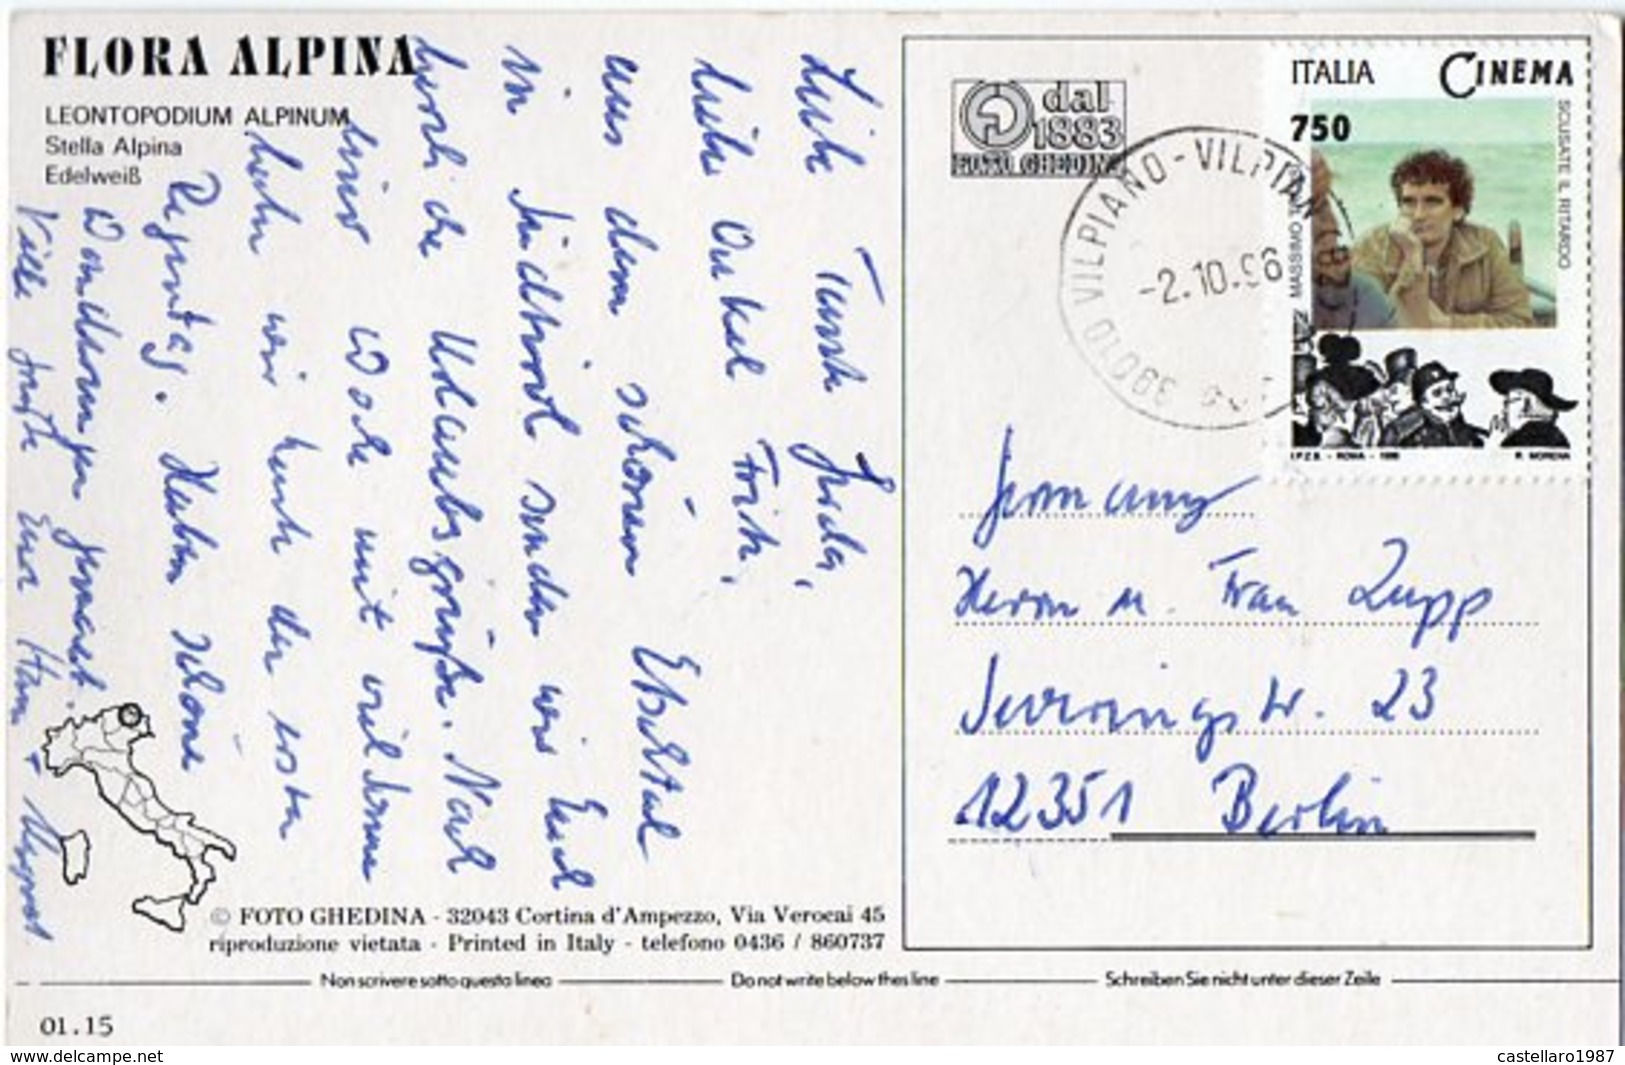 FLORA ALPINA
LEONTOPODIUM ALPINUM
Stella Alpina
Edelweiß
Liebe Tante Frida,
liebe Onkel Fritz,
aus dem schönen Etschtal
in Südtirol senden wir Euch
herzliche Urlaubsgrüße. Nach
einer Woche mit viel Sonne
haben wir heute den ersten
Regentag. Haben schöne
Wanderungen gemacht.
Viele Grüße Eure Hans +
dal
1883
FOTO GHEDINA
ITALIA CINEMA
750
SCUSATE IL RITARDO
MASSIMO
I.P.Z.S. - ROMA - 1996
R. MORENA
39010 VILPIANO - VILPIAN
-2.10.96
Germany
Herrn u. Frau Zupp
23
12351 Berlin
© FOTO GHEDINA - 32043 Cortina d'Ampezzo, Via Verocai 45
riproduzione vietata - Printed in Italy - telefono 0436 / 860737
Non scrivere sotto questa linea Do not write below this line Schreiben Sie nicht unter dieser Zeile
01.15
www.delcampe.net castellaro1987